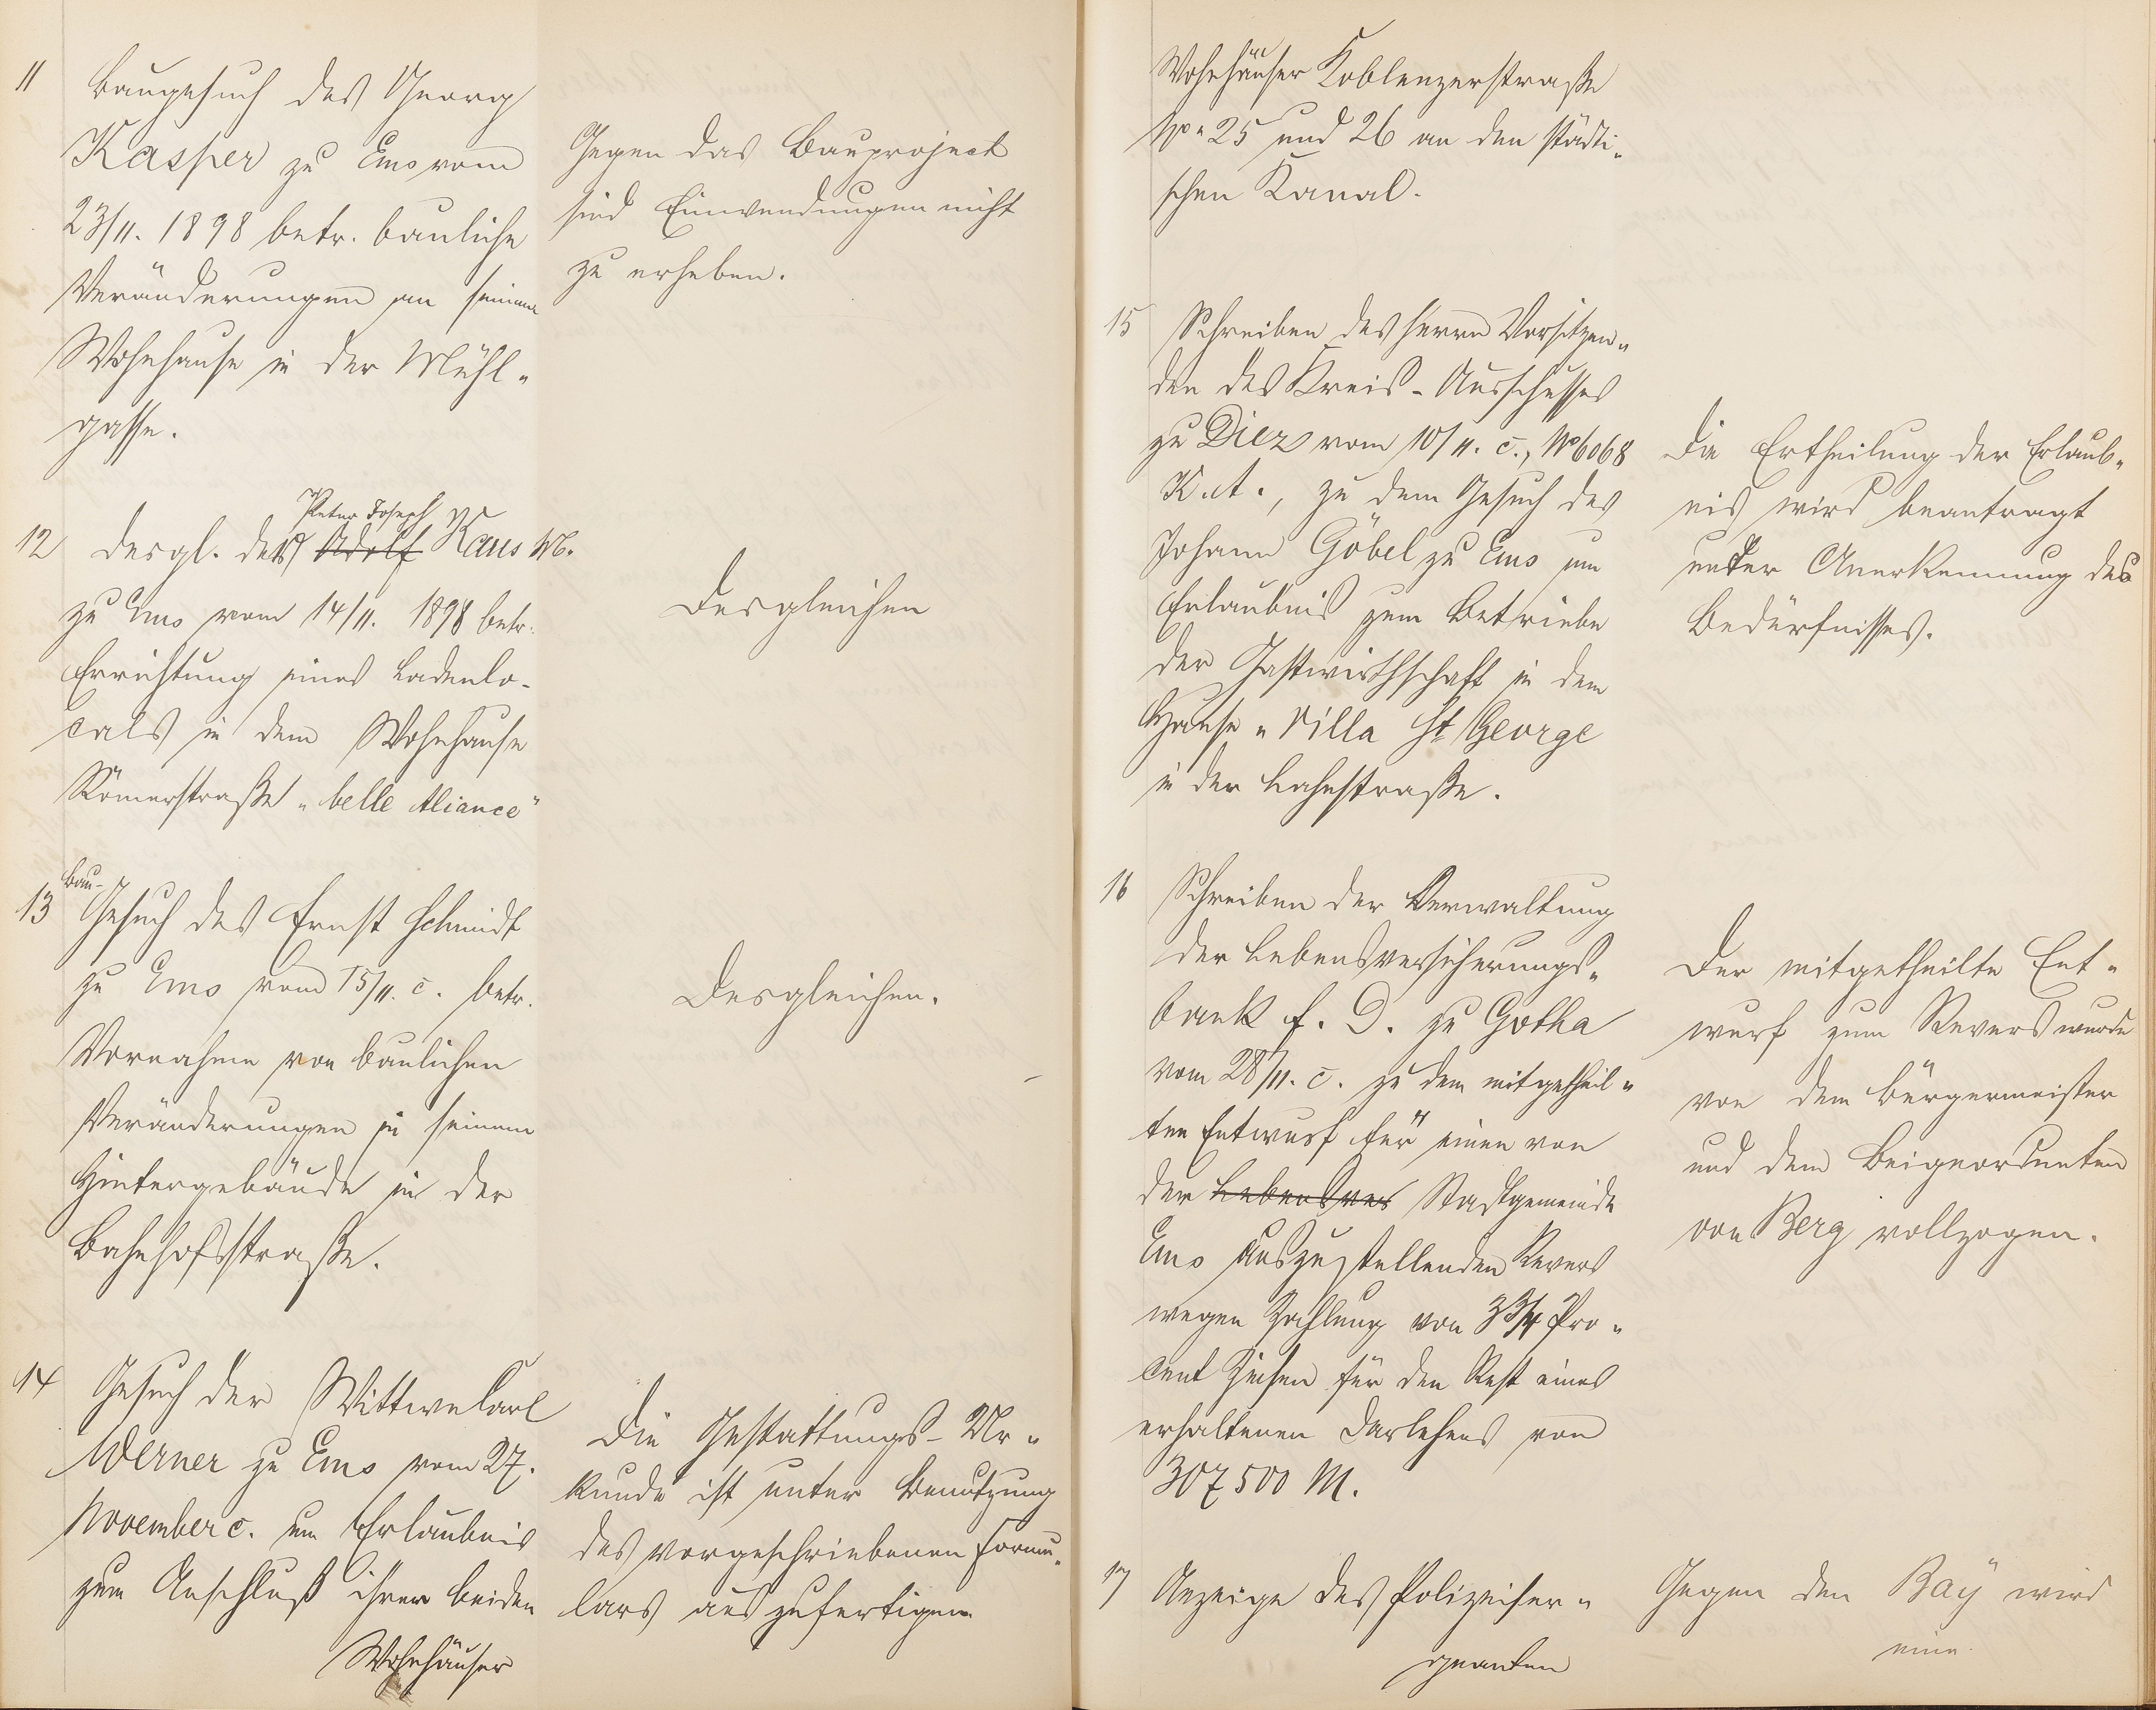 11 Baugesuch des Georg
Kasper zu Ems vom
23/11. 1898 betr. bauliche
Veränderungen an seinem
Wohnhause in der Mühl-
gasse.
Gegen das Bauproject
sind Einwendungen nicht
zu erheben.
Peter Joseph
12 Desgl. des Adolf Kaus M.
zu Ems vom 14/11. 1898 betr.
Errichtung eines Ladenlo-
cals in dem Wohnhause
Römerstraße „belle Aliance"
Desgleichen
Bau-
13 Gesuch des Ernst Schmidt
zu Ems vom 15/11. c. betr.
Vornahme von baulichen
Veränderungen in seinem
Hintergebäude in der
Bahnhofsstraße.
Desgleichen.
14 Gesuch der Wittwe Carl
Werner zu Ems vom 27.
November c. um Erlaubnis
zum Anschluß ihrer beiden
Wohnhäuser
Die Gestattungs-Ur-
kunde ist unter Benutzung
des vorgeschriebenen Formu-
lars auszufertigen
Wohnhäuser Koblenzerstraße
No 25 und 26 an den städti-
schen Kanal.
15 Schreiben des Herrn Vorsitzen-
den des Kreis-Ausschusses
zu Diez vom 10/11. c., No 6068
K.A., zu dem Gesuch des
Johann Göbel zu Ems um
Erlaubnis zum Betriebe
der Gastwirthschaft in dem
Hause „Villa St George
in der Lahnstraße.
Die Ertheilung der Erlaub-
nis wird beantragt
unter Anerkennung des
Bedürfnisses.
16 Schreiben der Verwaltung
der Lebensversicherungs-
bank f. D. zu Gotha
vom 28/11. c. zu dem mitgetheil-
ten Entwurf für einen von
der Lebensver Stadtgemeinde
Ems auszustellenden Revers
wegen Zahlung von 3 3/4 Pro-
cent Zinsen für den Rest eines
erhaltenen Darlehens von
307500 M.
Der mitgetheilte Ent-
wurf zum Revers wurde
von dem Bürgermeister
und dem Beigeordneten
von Berg vollzogen.
17 Anzeige des Polizeiser-
geanten
Gegen den Bay wird
eine